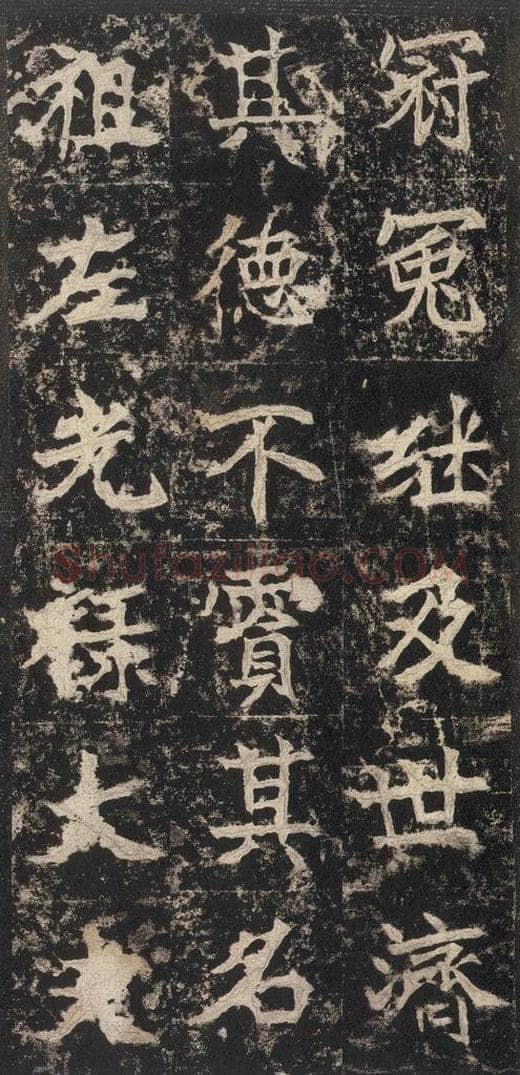 冠冕継及世濟
其德不霣其名
祖左光祿大夫
Shufaziliao.COM